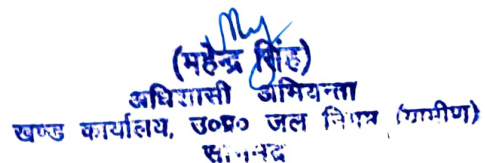 (महेन्द्र सिंह)
अधिशासी अभियन्ता
खण्ड कार्यालय, उ०प्र० जल निगम (ग्रामीण)